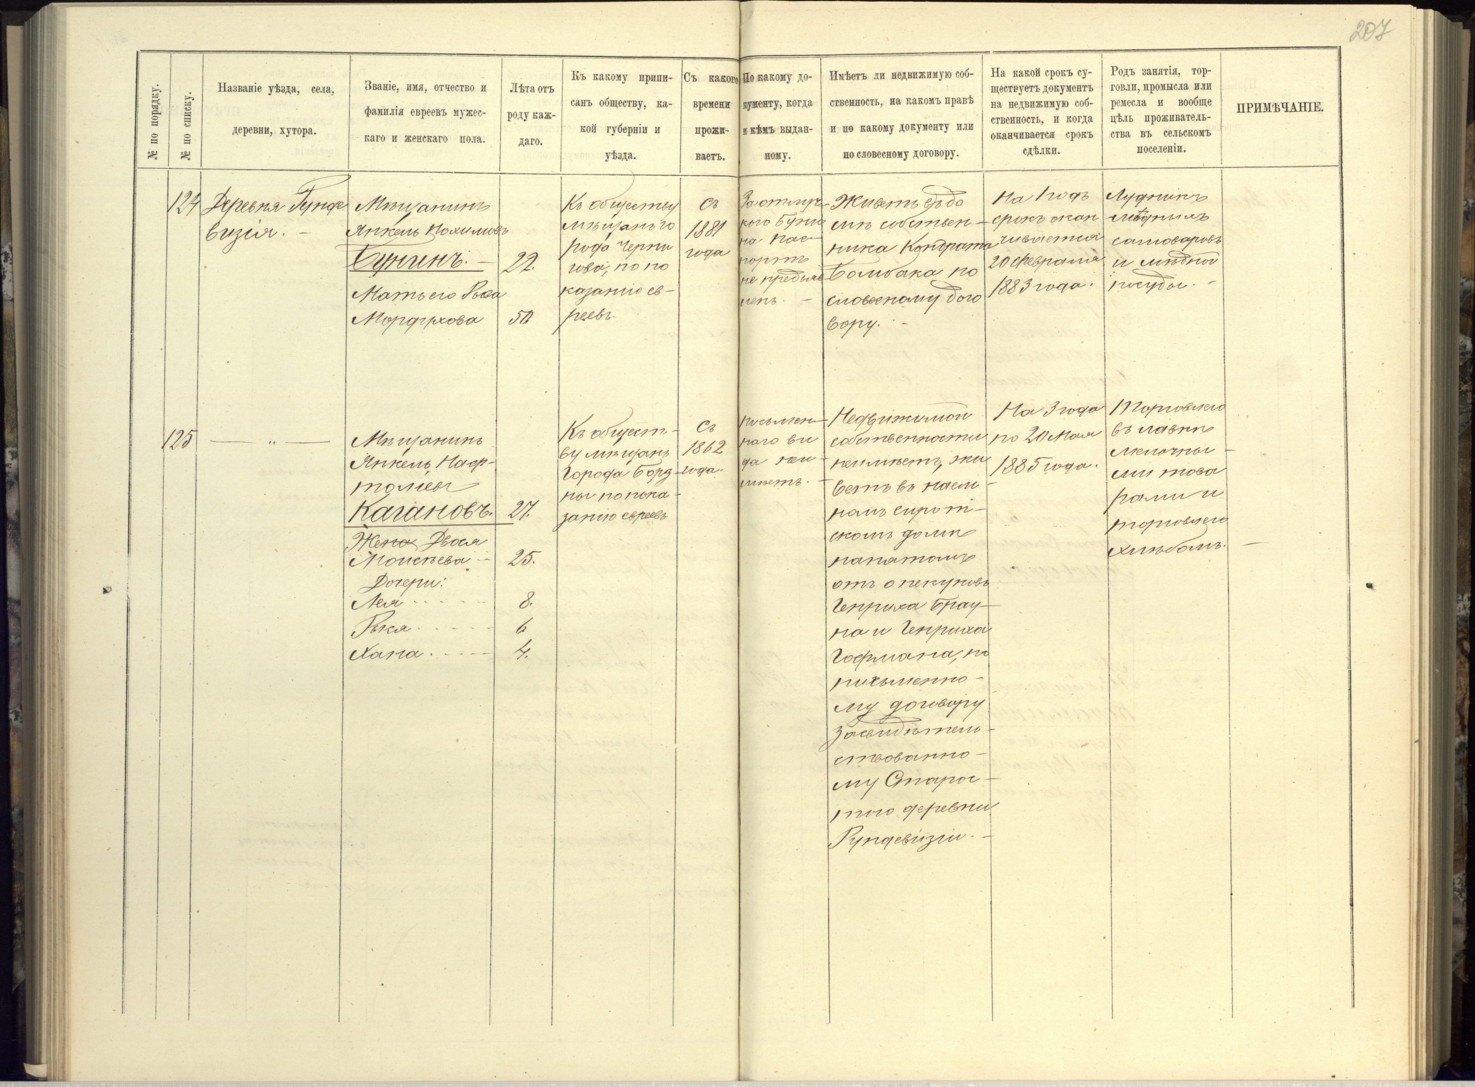 207
№ по порядку.
№ по списку.
Названіе уѣзда, села,
деревни, хутора.
Званіе, имя, отчество и
фамилія евреевъ мужес-
каго и женскаго пола.
Лѣта отъ
роду каж-
даго.
Къ какому припи-
санъ обществу, ка-
кой губерніи и
уѣзда.
Съ какого
времени
прожи-
ваетъ.
По какому до-
кументу, когда
и кѣмъ выдан-
ному.
Имѣетъ ли недвижимую соб-
ственность, на какомъ правѣ
и по какому документу или
по словесному договору.
На какой срокъ су-
ществуетъ документъ
на недвижимую соб-
ственность, и когда
оканчивается срокъ
сдѣлки.
Родъ занятія, тор-
говли, промысла или
ремесла и вообще
цѣль проживатель-
ства въ сельскомъ
поселеніи.
ПРИМѢЧАНІЕ.
124
Деревня Рунде
визія. –
Мѣщанинъ
Янкель
Бунинъ. –
22.
Мать его Рыся
Мордухова
50
Къ обществу
мѣщанъ го
рода Черни
гова, по по
казанію ев-
реевъ.
Съ
1881
года
на пас-
портъ
не предъяв
ленъ. –
Живетъ въ до
мѣ собствен-
ника Кондрата
по
словесному дого
вору. –
На 1 годъ
срокъ окан
чивается
20 февраля
1883 года.
Лудникъ
мѣдныхъ
самоваровъ
и мѣдной
посуды. –
125
— „ —
Мѣщанинъ
Янкель
Кагановъ.
27.
Жена Двося
Моисѣева
25.
Дочери:
Лея
8.
Рыся
6
Хана.
4.
Къ общест-
ву мѣщанъ
Города Борз-
ны по пока-
занію евреевъ
Съ
1862
года.
Письмен-
наго ви
да не и-
мѣетъ. –
Недвижимой
собственности
не имѣетъ, жи
ветъ въ наем-
номъ сирот-
скомъ домѣ
нанятомъ
отъ опекуновъ
Генриха Брау-
на и Генриха
Гофмана, по
письменно-
му договору
засвидѣтель-
ствованно-
му Старос-
тою деревни
Рундевизіи. –
На 3 года
по 20 мая
1885 года.
Торговлею
въ лавкѣ
мелочны-
ми това
рами и
торговлею
хлѣбомъ. –